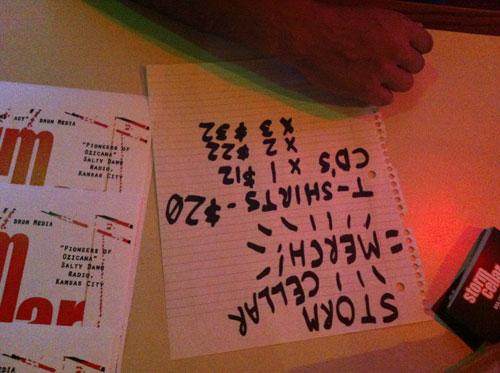 STORM
CELLAR
= MERCH!
T-SHIRTS - $20
CD'S
x 1 $12
x 2 $22
x 3 $32
DRUM MEDIA
"PIONEERS OF
OZICANA"
SALTY DAWG
RADIO,
KANSAS CITY
DRUM MEDIA
"PIONEERS OF
OZICANA"
SALTY DAWG
RADIO,
KANSAS CITY
storm
cellar